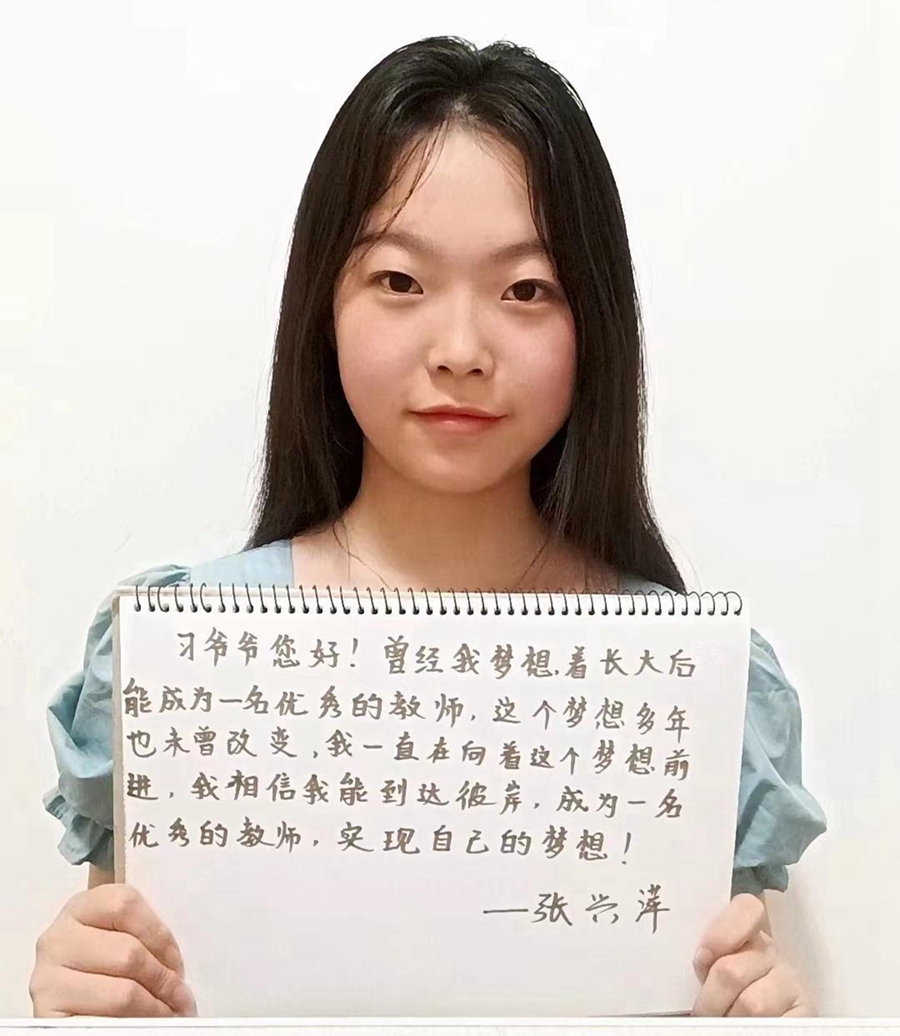 习爷爷您好！曾经我梦想着长大后
能成为一名优秀的教师，这个梦想多年
也未曾改变，我一直在向着这个梦想前
进，我相信我能到达彼岸，成为一名
优秀的教师，实现自己的梦想！
——张兴萍